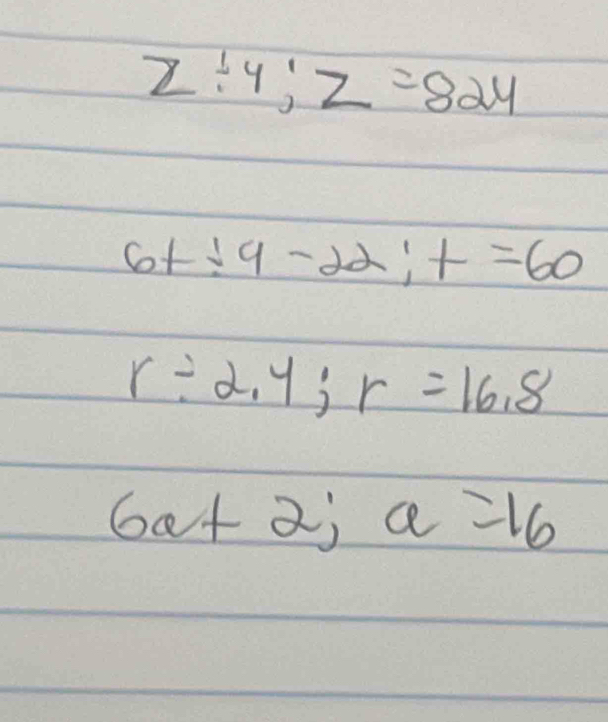 z ÷ 4; z = 824
6t ÷ 9 - 22; t = 60
r ÷ 2.4; r = 16.8
6a + 2; a = 16